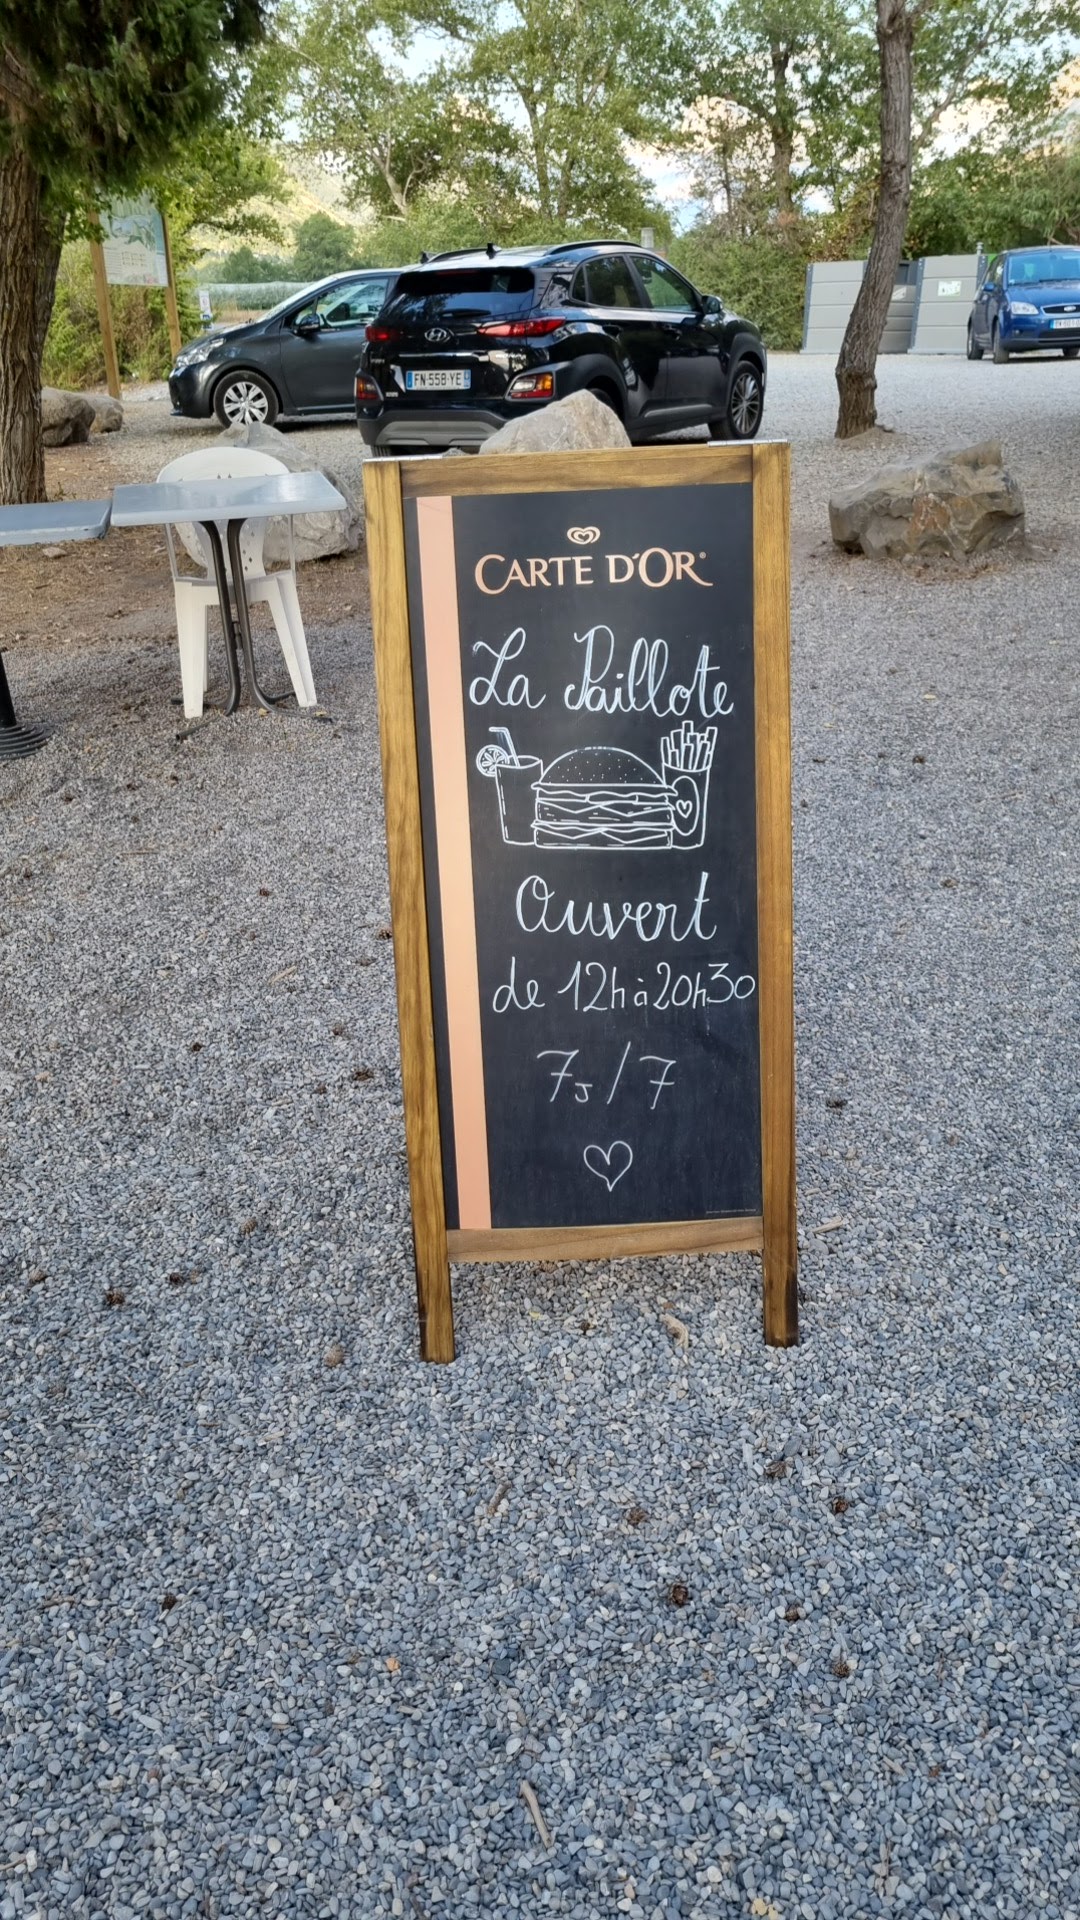 CARTE D'OR®
La Paillote
Ouvert
de 12h à 20h30
7J/7
FN-558-YE